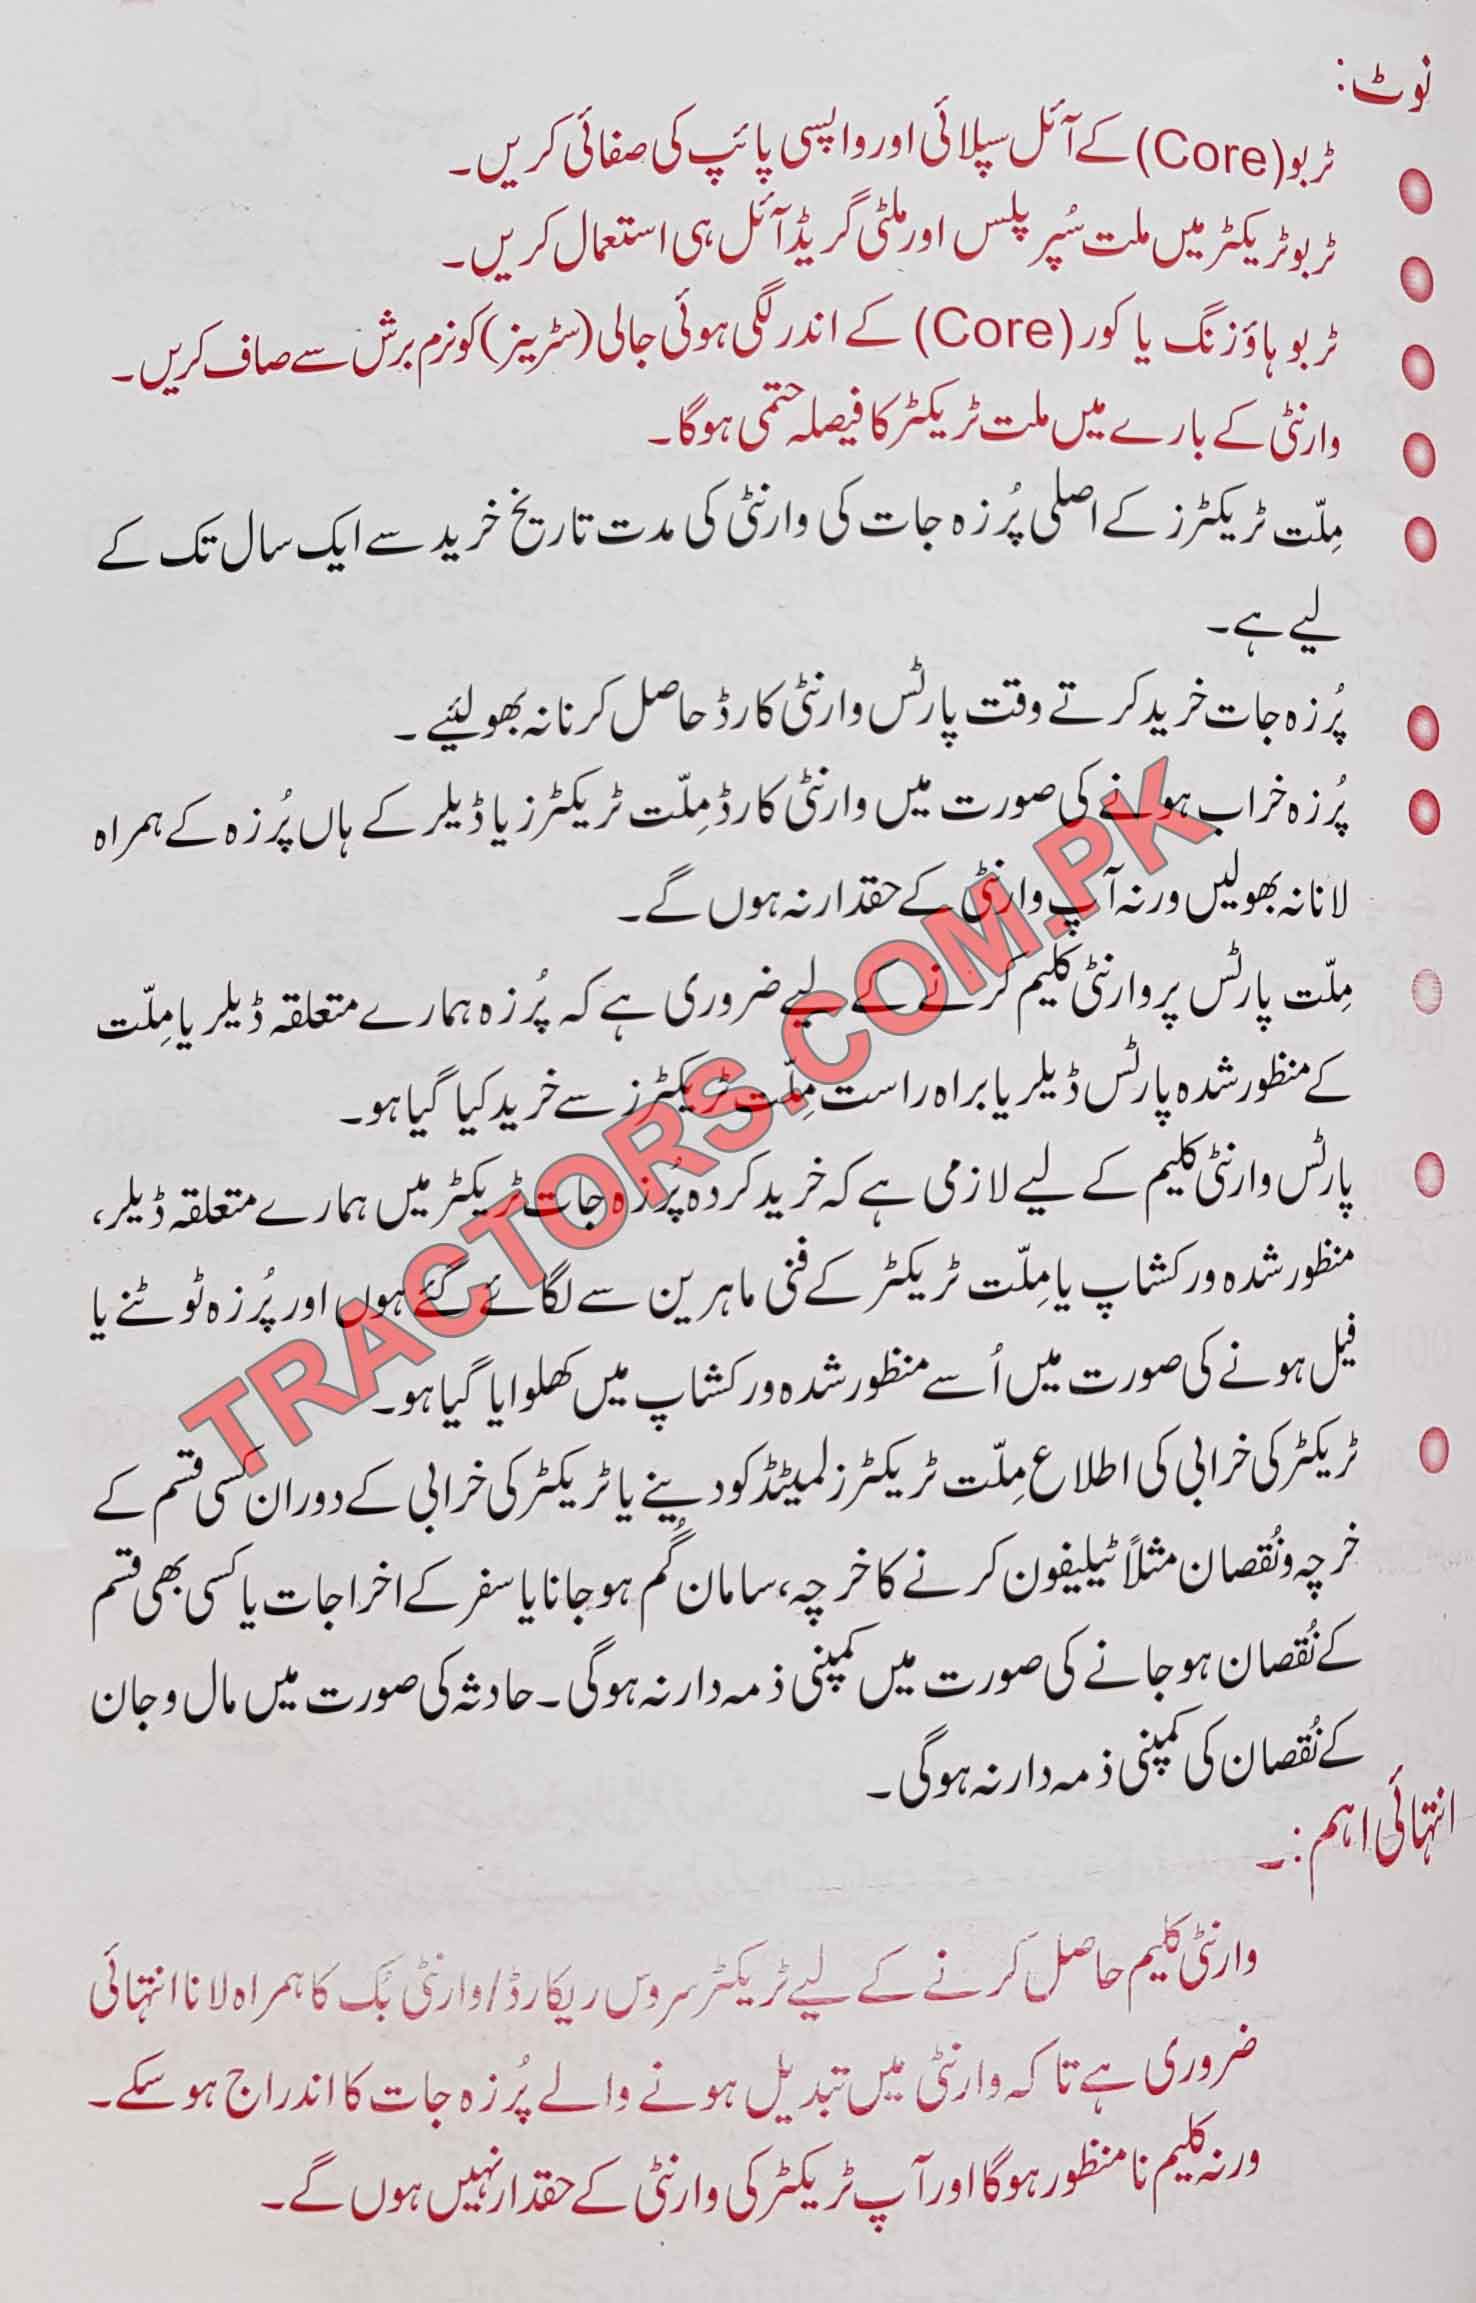 نوٹ:
ٹربو (Core) کے آئل سپلائی اور واپسی پائپ کی صفائی کریں۔
ٹربو ٹریکٹر میں ملت سُپر پلس اور ملٹی گریڈ آئل ہی استعمال کریں۔
ٹربو ہاؤزنگ یا کور (Core) کے اندر لگی ہوئی جالی (سٹرینر) کو نرم برش سے صاف کریں۔
وارنٹی کے بارے میں ملت ٹریکٹر کا فیصلہ حتمی ہوگا۔
مِلّت ٹریکٹرز کے اصلی پُرزہ جات کی وارنٹی کی مدت تاریخ خرید سے ایک سال تک کے
لیے ہے۔
پُرزہ جات خرید کرتے وقت پارٹس وارنٹی کارڈ حاصل کرنا نہ بھولئیے۔
پُرزہ خراب ہونے کی صورت میں وارنٹی کارڈ مِلّت ٹریکٹرز یا ڈیلر کے ہاں پُرزہ کے ہمراہ
لانا نہ بھولیں ورنہ آپ وارنٹی کے حقدار نہ ہوں گے۔
مِلّت پارٹس پر وارنٹی کلیم کرنے کے لیے ضروری ہے کہ پُرزہ ہمارے متعلقہ ڈیلر یا مِلّت
کے منظور شدہ پارٹس ڈیلر یا براہ راست مِلّت ٹریکٹرز سے خرید کیا گیا ہو۔
پارٹس وارنٹی کلیم کے لیے لازمی ہے کہ خرید کردہ پُرزہ جات ٹریکٹر میں ہمارے متعلقہ ڈیلر،
منظور شدہ ورکشاپ یا مِلّت ٹریکٹر کے فنی ماہرین سے لگائے گئے ہوں اور پُرزہ ٹوٹنے یا
فیل ہونے کی صورت میں اُسے منظور شدہ ورکشاپ میں کھلوایا گیا ہو۔
ٹریکٹر کی خرابی کی اطلاع مِلّت ٹریکٹرز لمیٹڈ کو دینے یا ٹریکٹر کی خرابی کے دوران کسی قسم کے
خرچہ و نُقصان مثلاً ٹیلیفون کرنے کا خرچہ، سامان گُم ہو جانا یا سفر کے اخراجات یا کسی بھی قسم
کے نُقصان ہو جانے کی صورت میں کمپنی ذمہ دار نہ ہوگی۔ حادثہ کی صورت میں مال و جان
کے نُقصان کی کمپنی ذمہ دار نہ ہوگی۔
انتہائی اہم:۔
وارنٹی کلیم حاصل کرنے کے لیے ٹریکٹر سروس ریکارڈ/وارنٹی بُک کا ہمراہ لانا انتہائی
ضروری ہے تا کہ وارنٹی میں تبدیل ہونے والے پُرزہ جات کا اندراج ہو سکے۔
ورنہ کلیم نامنظور ہوگا اور آپ ٹریکٹر کی وارنٹی کے حقدار نہیں ہوں گے۔
TRACTORS.COM.PK